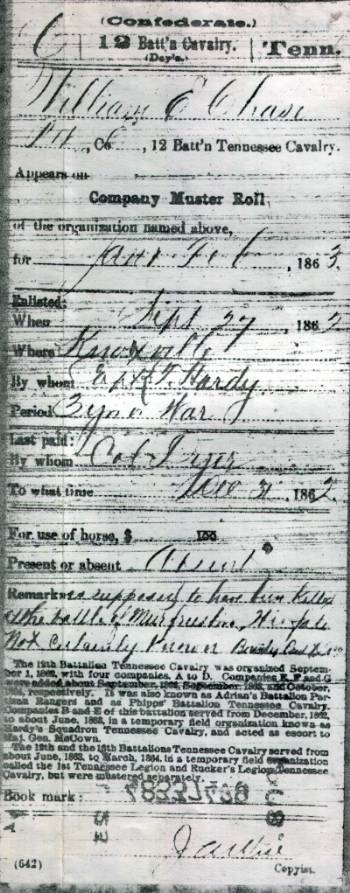 (Confederate.)
C | 12 Batt'n Cavalry. | Tenn.
(Day's.)
William E Chase
Pvt, Co. C, 12 Batt'n Tennessee Cavalry.
Appears on
Company Muster Roll
of the organization named above,
for Jan & Feb, 1863
Enlisted:
When Sept 27, 1862
Where Knoxville
By whom Hardy
Period 3 yrs or War
Last paid:
By whom Col
To what time Dec 31, 1862
For use of horse, $ 100
Present or absent Absent
Remarks: was supposed to have been killed
at the battle of Murfreesboro. His fate
Not Certainly Known Bounty
The 12th Battalion Tennessee Cavalry was organized Septem-
ber 1, 1862, with four companies, A to D. Companies E, F and G
were added about September, 1862, September, 1863, and October,
1864, respectively. It was also known as Adrian's Battalion Par-
tisan Rangers and as Phipps' Battalion Tennessee Cavalry.
Companies B and C of this battalion served from December, 1862,
to about June, 1863, in a temporary field organization known as
Hardy's Squadron Tennessee Cavalry, and acted as escort to
Maj. Gen. McCown.
The 12th and the 16th Battalions Tennessee Cavalry served from
about June, 1863, to March, 1864, in a temporary field organization
called the 1st Tennessee Legion and Rucker's Legion Tennessee
Cavalry, but were mustered separately.
Book mark:
(642)
Copyist.